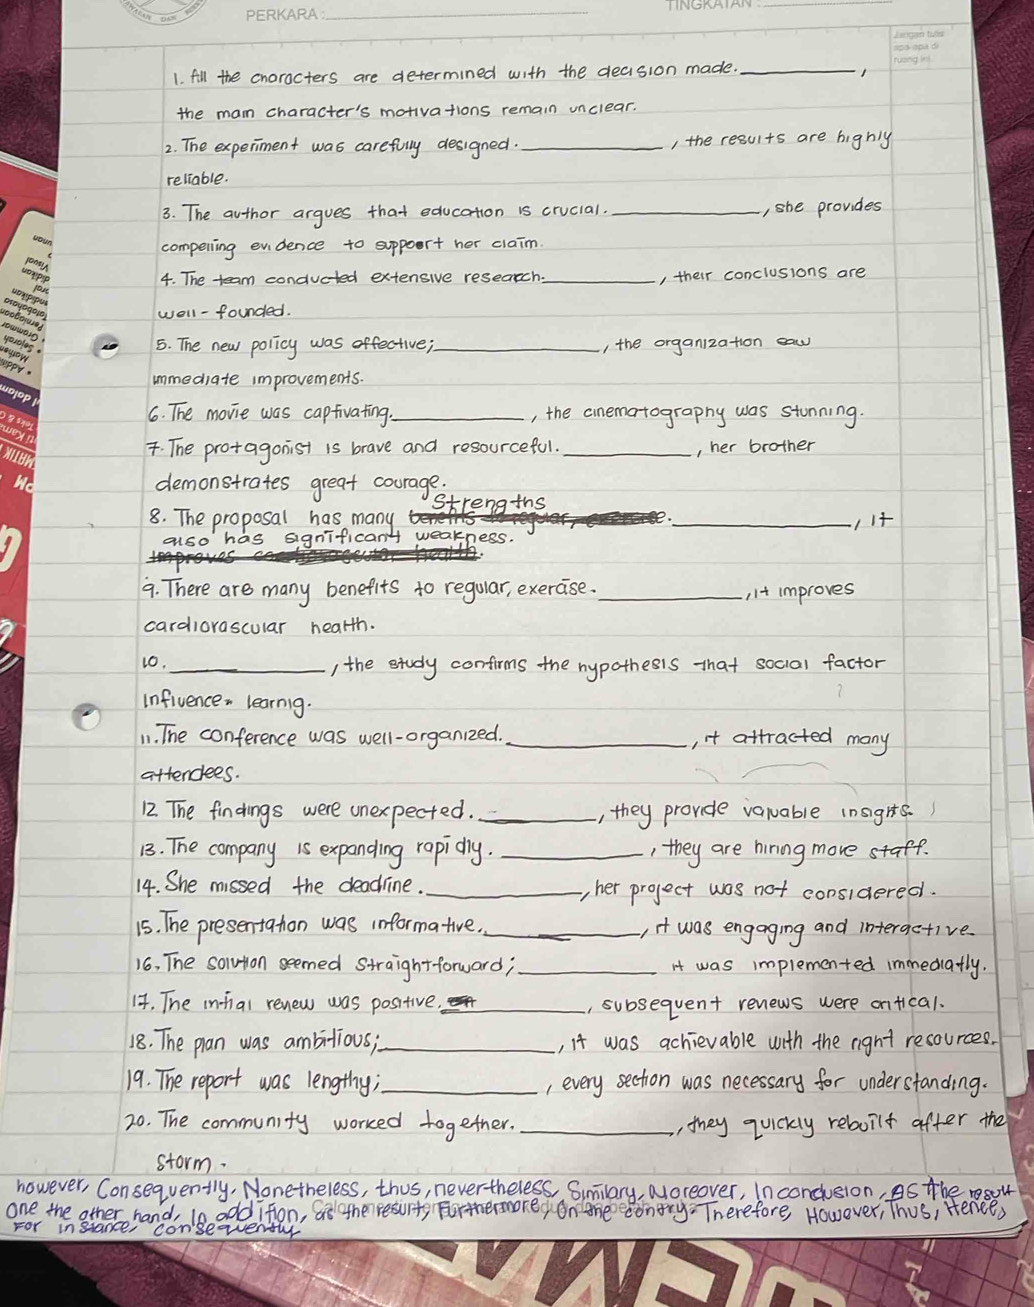 PERKARA :
TINGKATAN :
Jangan tulis
apa-apa di
ruang ini
1. All the characters are determined with the decision made.__________,
the main character's motivations remain unclear.
2. The experiment was carefully designed.__________, the results are highly
reliable.
3. The author argues that education is crucial.__________, she provides
compelling evidence to suppoert her claim.
4. The team conducted extensive research.__________, their conclusions are
well-founded.
5. The new policy was effective;__________, the organization saw
immediate improvements.
6. The movie was captivating.__________, the cinematography was stunning.
7. The protagonist is brave and resourceful.__________, her brother
demonstrates great courage.
8. The proposal has many strengths.__________, it
also has significant weakness.
9. There are many benefits to regular, exercise.__________, it improves
cardiovascular health.
10.__________, the study confirms the hypothesis that social factor
influence learnig.
11. The conference was well-organized.__________, it attracted many
attendees.
12. The findings were unexpected.__________, they provide valuable insights.
13. The company is expanding rapidly.__________, they are hiring more staff.
14. She missed the deadline.__________, her project was not considered.
15. The presentation was informative.__________, it was engaging and interactive.
16. The solution seemed straight-forward;__________ it was implemented immediatly.
17. The initial review was positive.__________, subsequent reviews were critical.
18. The plan was ambitious;__________, it was achievable with the right resources.
19. The report was lengthy;__________, every section was necessary for understanding.
20. The community worked together.__________, they quickly rebuilt after the
storm.
however, Consequently, Nonetheless, thus, never-theless, Similary, Moreover, In conclusion, As the result
One the other hand, In addition, as the result, Furthermore, On the contry. Therefore, However, Thus, Hence,
For instance, consequently